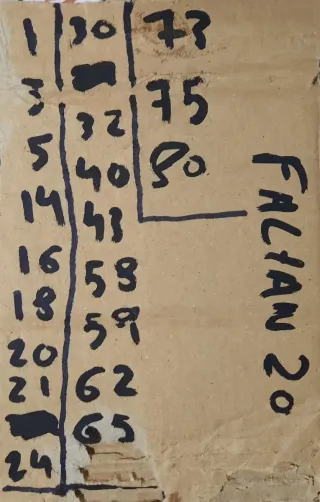 1
3
5
14
16
18
20
21
24
30
32
40
43
58
59
62
65
73
75
80
FALTAN 20